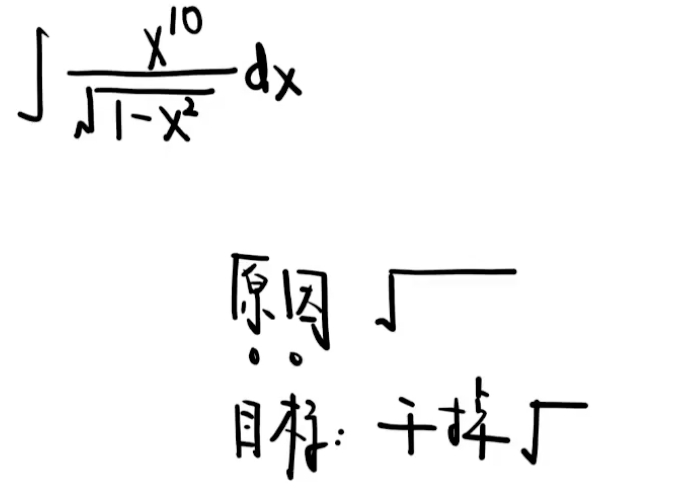 ∫ x^10/√(1-x^2) dx
原因 √
目标: 干掉√